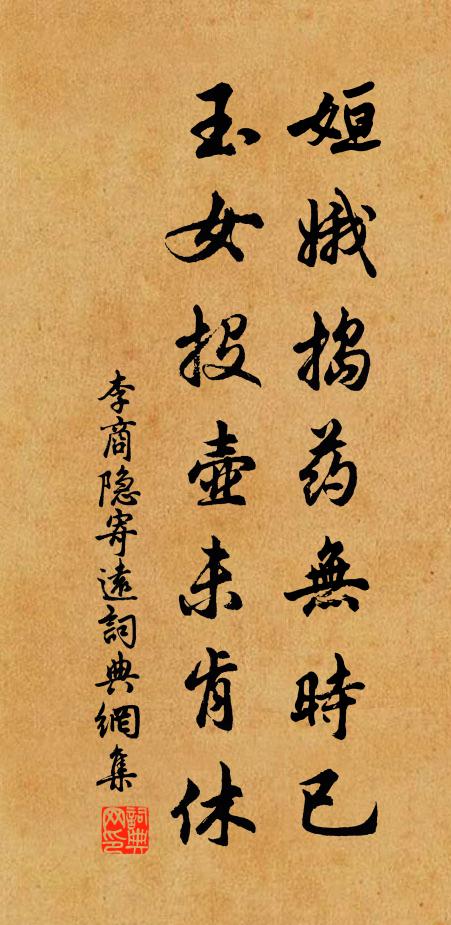 姮娥搗药無時已
玉女投壺未肯休
李商隐寄遠詞典網集
詞典网印